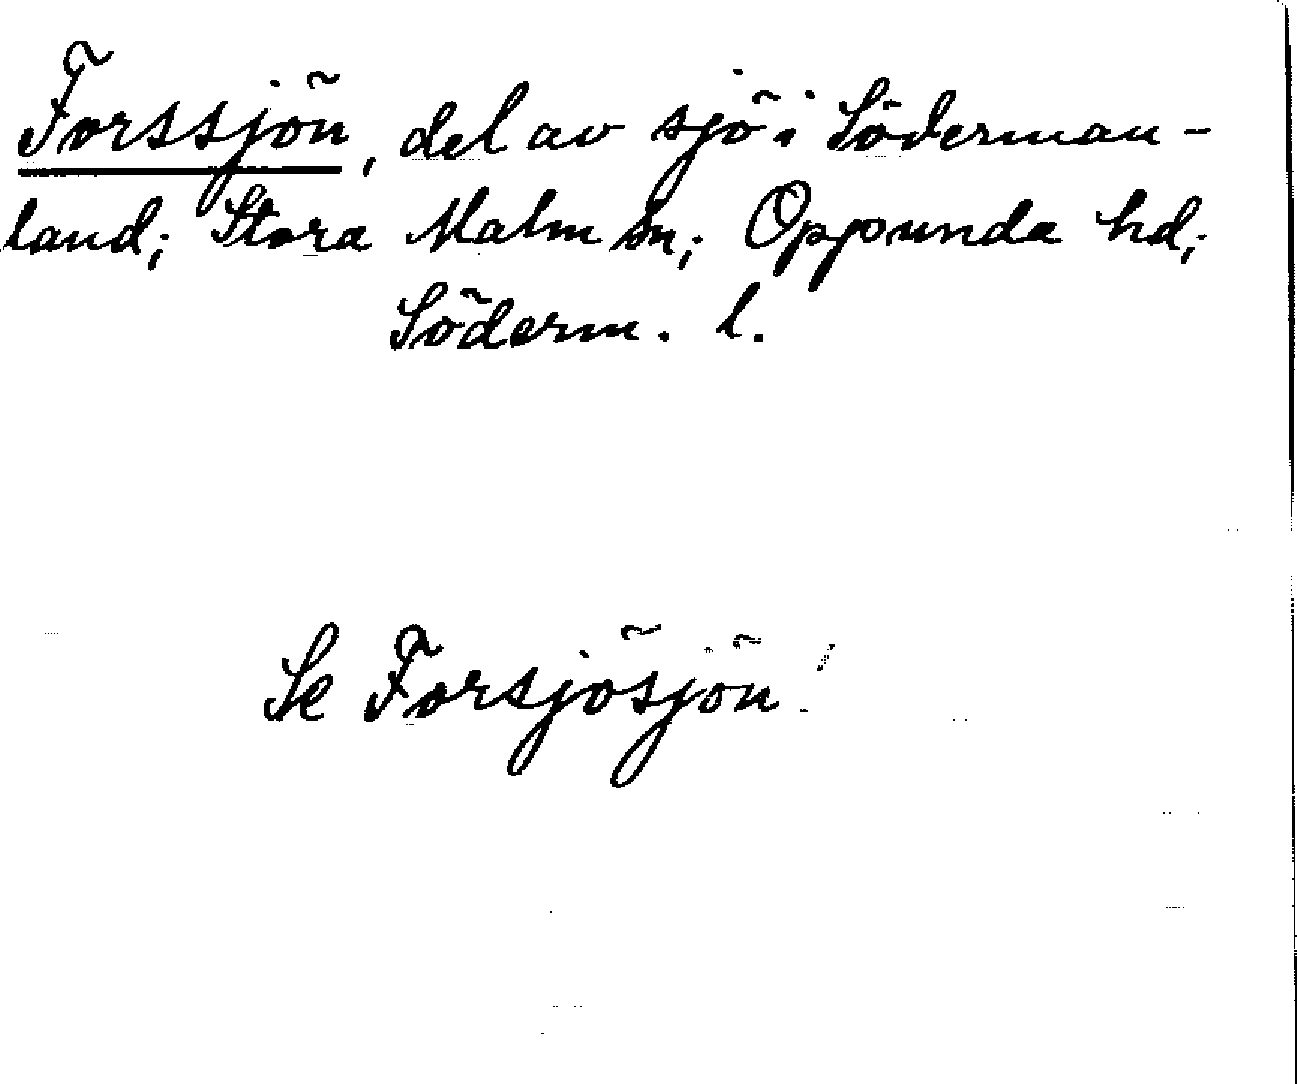 Forssjön, del av sjö i Söderman-
land; Stora Malm sn; Oppunda hd;
Söderm. l.
Se Forsjösjön!